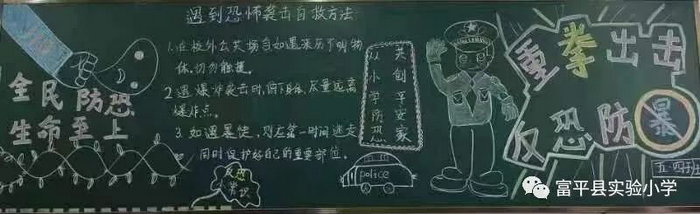 全民防恐
生命至上
遇到恐怖袭击自救方法:
1.在校外公共场合如遇来历不明物
体,切勿触摸。
2.遇爆炸袭击时,俯下身体,尽量远离
爆炸点。
3.如遇暴徒,则在第一时间逃走
同时保护好自己的重要部位。
从小学防恐
共创平安家
police
重拳出击
反恐防暴
五.四班
富平县实验小学